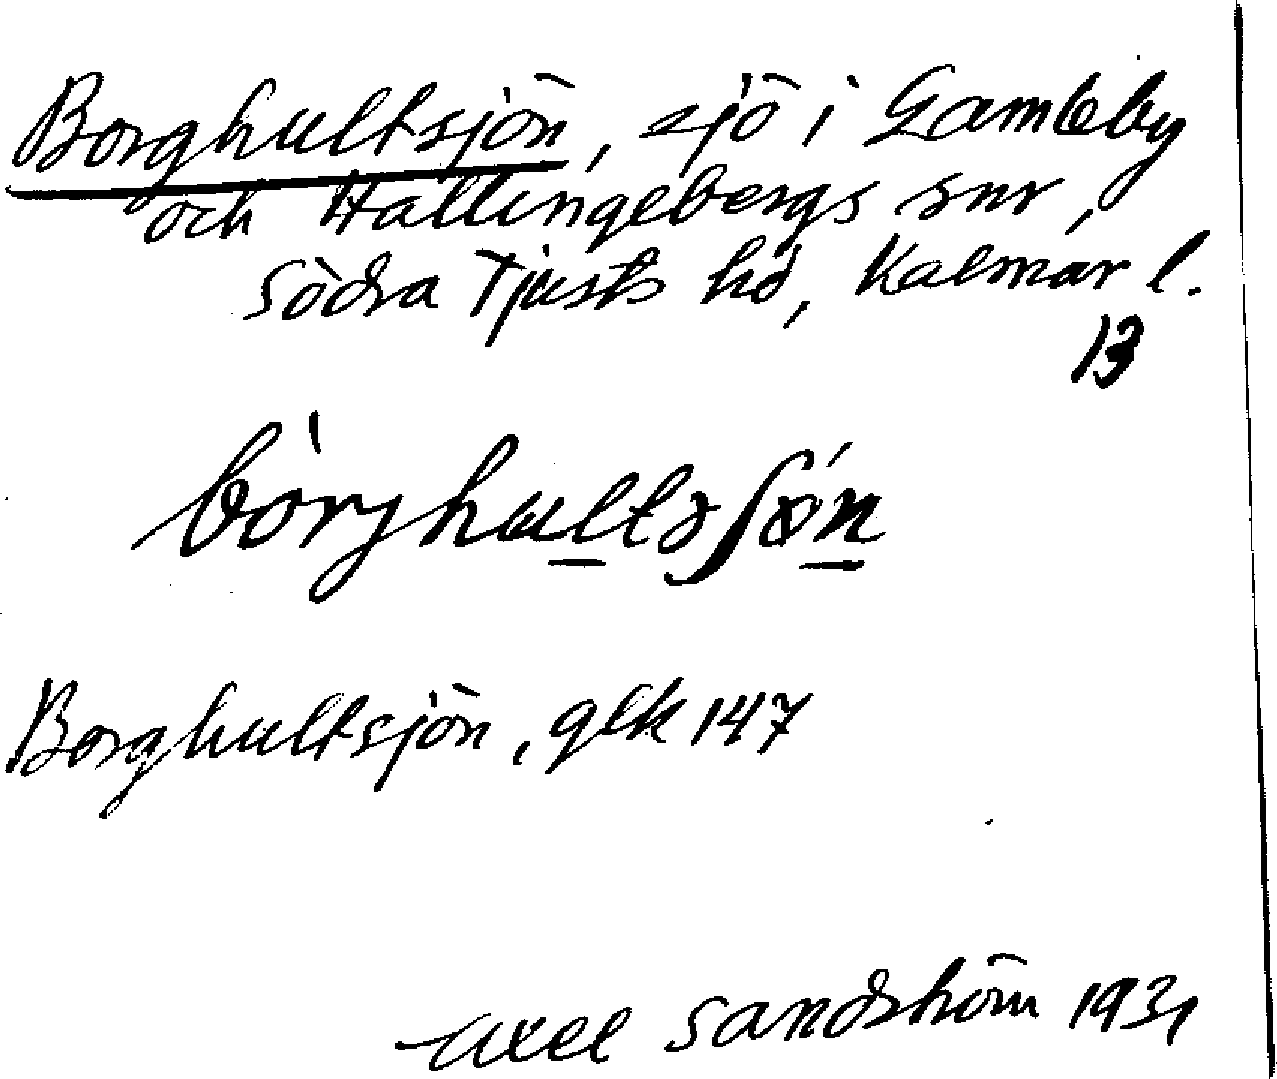 Borghultsjön, sjö i Gamleby
och Hallingebergs snr,
Södra Tjusts hd, Kalmar l.
13
bòrjhultsʃǿn
Borghultsjön, glk 147
Axel Sandström 1931